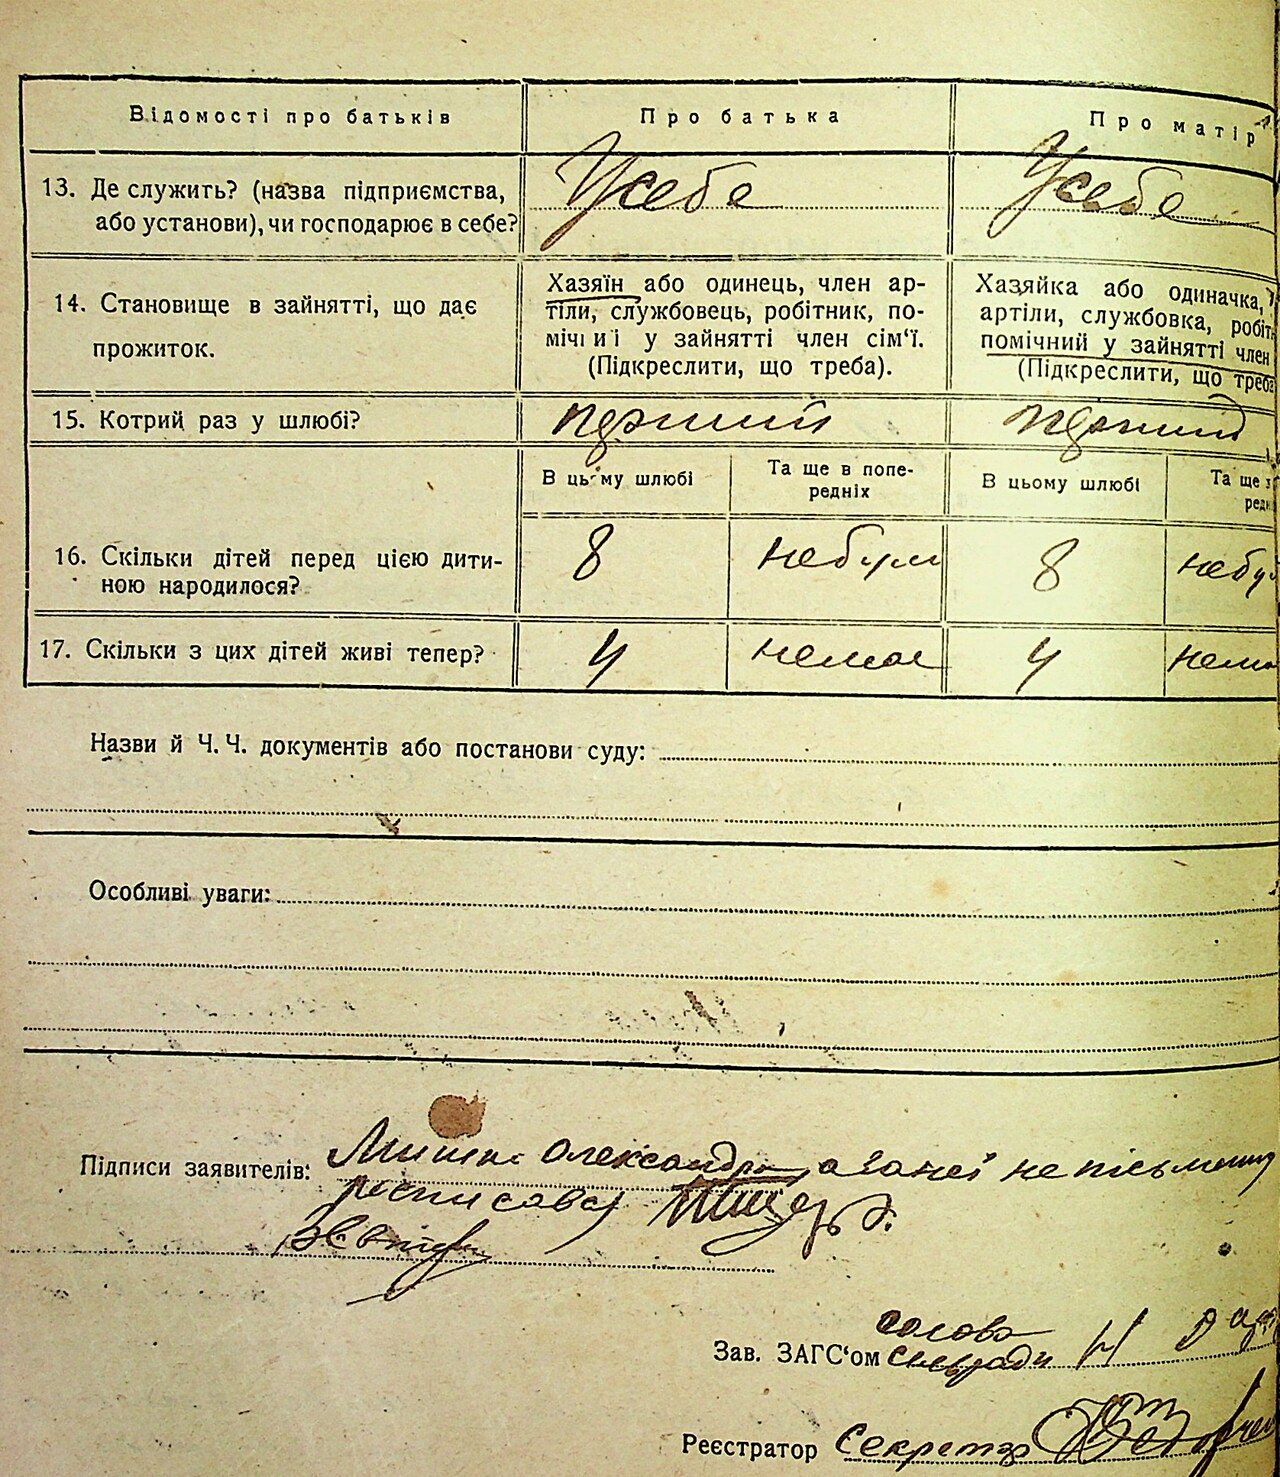 Відомості про батьків Про батька Про матір
13. Де служить? (назва підприємства, або установи), чи господарює в себе? Усебе Усебе
14. Становище в зайнятті, що дає прожиток.
Хазяїн або одинець, член ар-
тіли, службовець, робітник, по-
мічний у зайнятті член сім‘ї.
(Підкреслити, що треба).
Хазяйка або одиначка,
артіли, службовка, робіт
помічний у зайнятті член
(Підкреслити, що треба
15. Котрий раз у шлюбі? перший перший
В цьому шлюбі Та ще в попе-
редніх
В цьому шлюбі Та ще
редн
16. Скільки дітей перед цією дити-
ною народилося? 8 небули 8 небул
17. Скільки з цих дітей живі тепер? 4 немає 4 нема
Назви й Ч.Ч. документів або постанови суду:
Особливі уваги:
Підписи заявителів: Олександра, а занеї не пісьмену
росписавсь
Зав. ЗАГС‘ом голова
сільради
Реєстратор Секретар